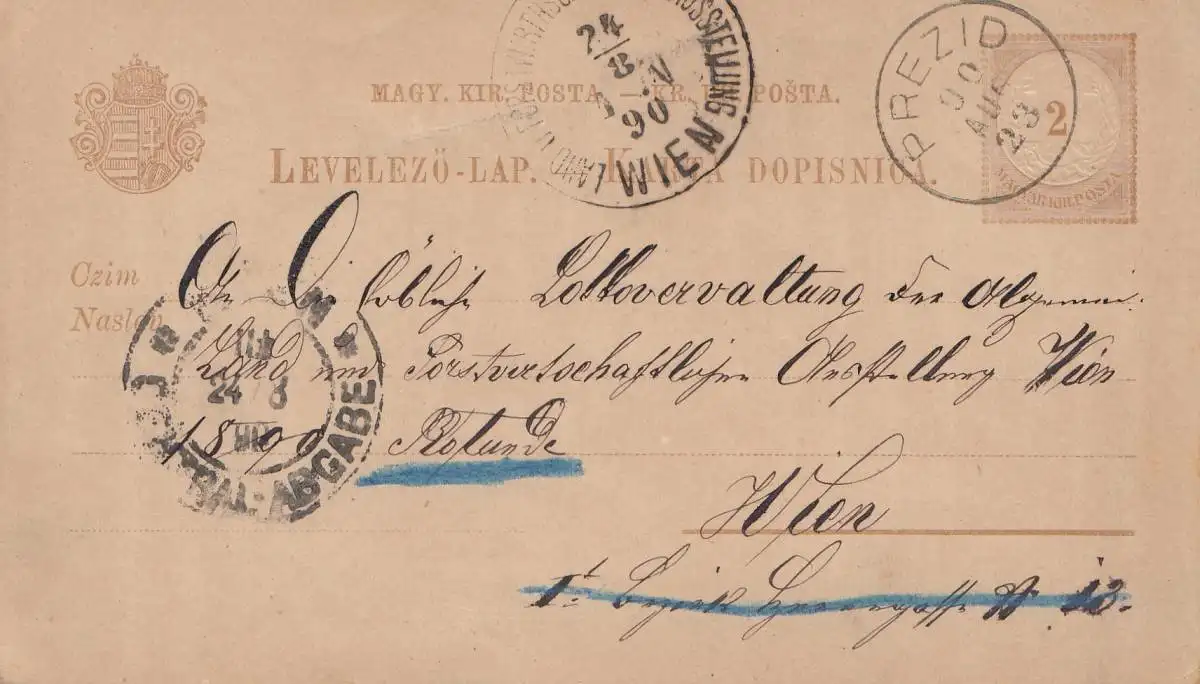 MAGY. KIR. POSTA. — KR. POŠTA.
LEVELEZŐ-LAP. — KARTA DOPISNICA.
WIEN
LAND U FORSTWIRTHSCH AUSSTELLUNG
24/8
90
PREZID
90
AUG
23
2
MAGYAR KIR. POSTA
Czim
Naslov
An Die löbliche Lottoverwaltung der Algemein.
Land und Forstvirtschaftlichen Ausstellung Wien
1890 Rotunde
Wien
1t Bezirk Herrengasse N 13.
24 8
ABGABE